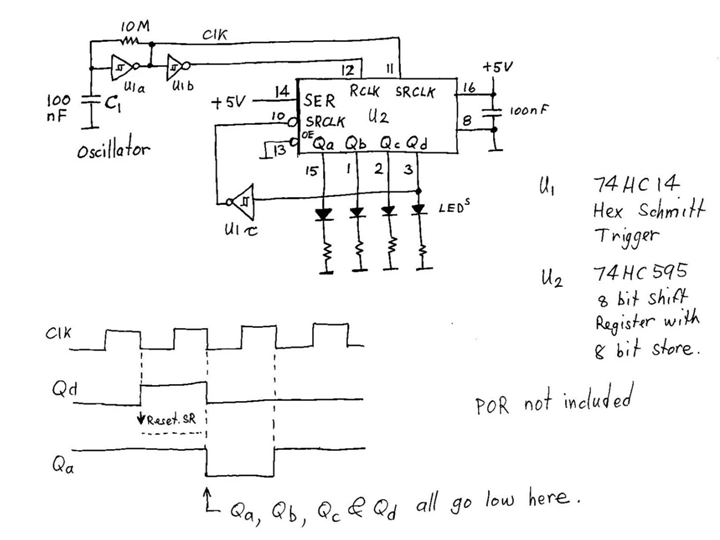 10M
Clk
U1a
U1b
100
nF
C1
Oscillator
12
11
+5V
14
SER
RCLK
SRCLK
16
+5V
10
SRCLK
U2
100nF
8
OE
13
Qa
Qb
Qc
Qd
15
1
2
3
LEDs
U1c
U1
74HC14
Hex Schmitt
Trigger
U2
74HC595
8 bit shift
Register with
8 bit store.
Clk
Qd
Reset SR
Qa
POR not included
Qa, Qb, Qc & Qd all go low here.